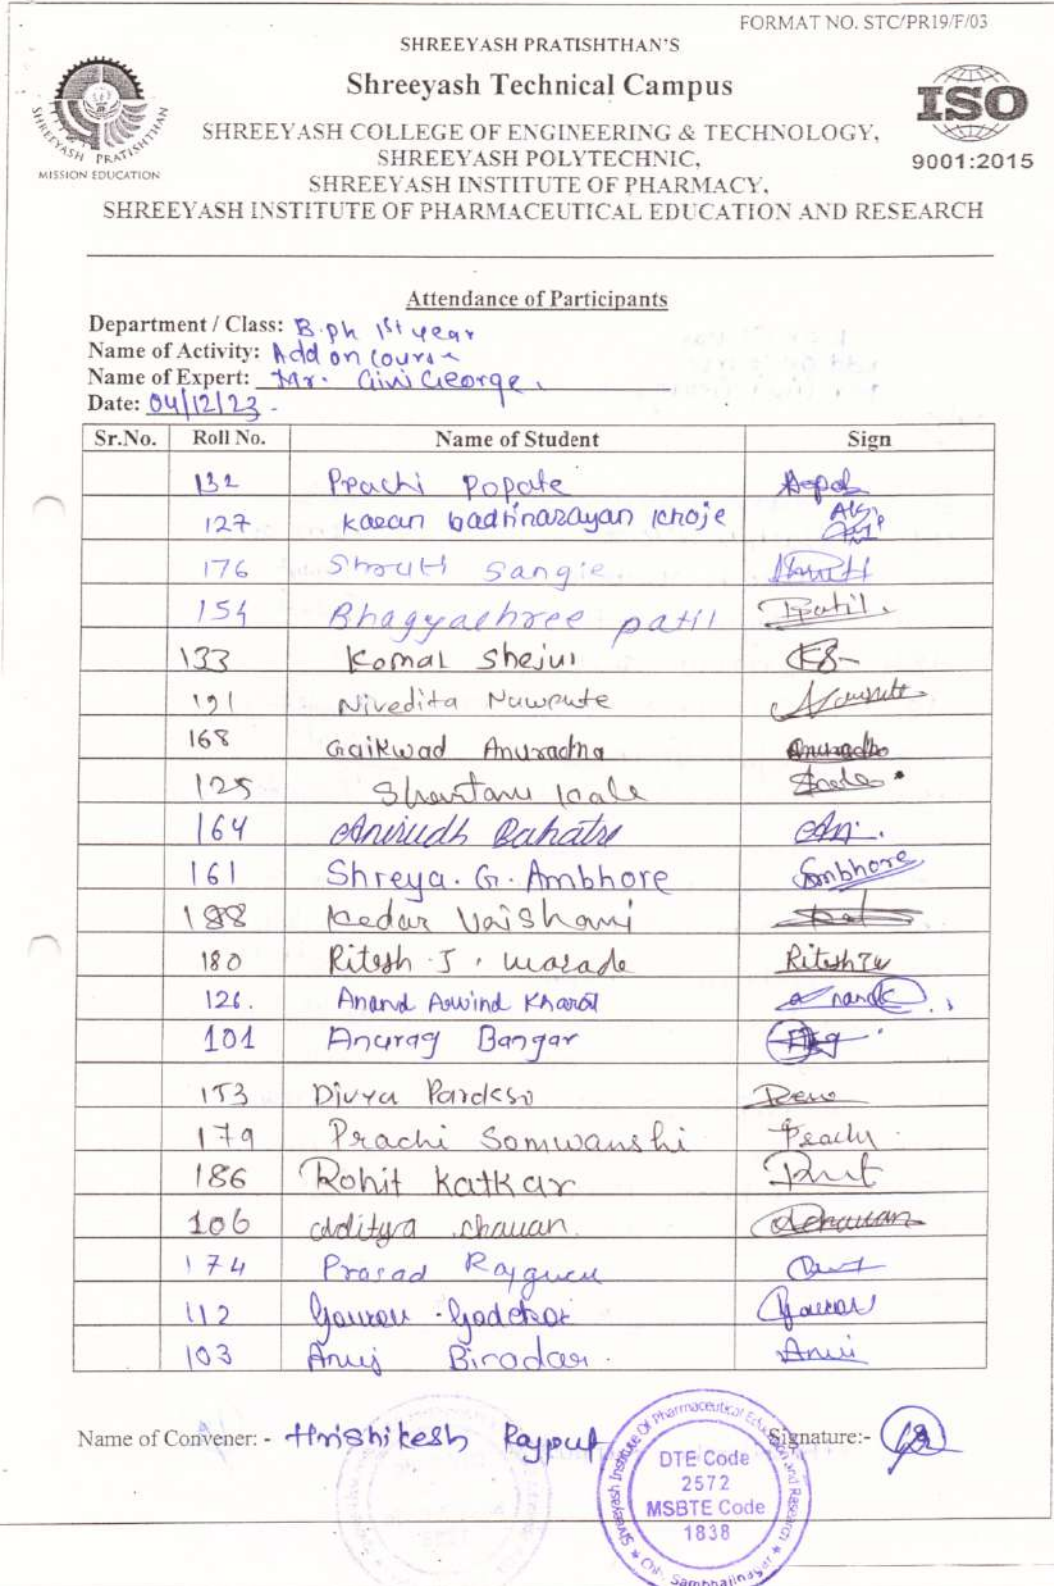 FORMAT NO. STC/PR19/F/03
SHREEYASH PRATISHTHAN'S
Shreeyash Technical Campus
SHREEYASH COLLEGE OF ENGINEERING & TECHNOLOGY,
SHREEYASH POLYTECHNIC,
SHREEYASH INSTITUTE OF PHARMACY,
SHREEYASH INSTITUTE OF PHARMACEUTICAL EDUCATION AND RESEARCH
SHREEYASH PRATISHTHAN
MISSION EDUCATION
ISO
9001:2015
Attendance of Participants
Department / Class: B.ph 1st year
Name of Activity: Add on course
Name of Expert: Mr. Givi George.
Date: 04/12/23.
Sr.No. Roll No. Name of Student Sign
132 Prachi Popate
127 karan badrinarayan khoje
176 Shruti Sangle
154 Bhagyashree patil Patil.
133 Komal Shejul
191 Nivedita Nawpute
168 Gaikwad Anuradha Anuradha
125 Shantanu kale
164 Anirudh Bahatre
161 Shreya. G. Ambhore Ambhore
188 Kedar Vaishnavi
180 Ritesh J. warade Ritesh
126. Anand Arwind Kharat
101 Anurag Bangar
153 Divya Pardesi
179 Prachi Somwanshi
186 Rohit Katkar
106 Aditya chauan. Achauan
174 Prasad Rajguru
112 Gaurav Godekar Gaurav
103 Anuj Biradar. Anuj
Name of Convener: - Hrishikesh Rajput Signature:-
Shreeyash Institute Of Pharmaceutical Education and Research
DTE Code
2572
MSBTE Code
1838
Chh. Sambhajinagar